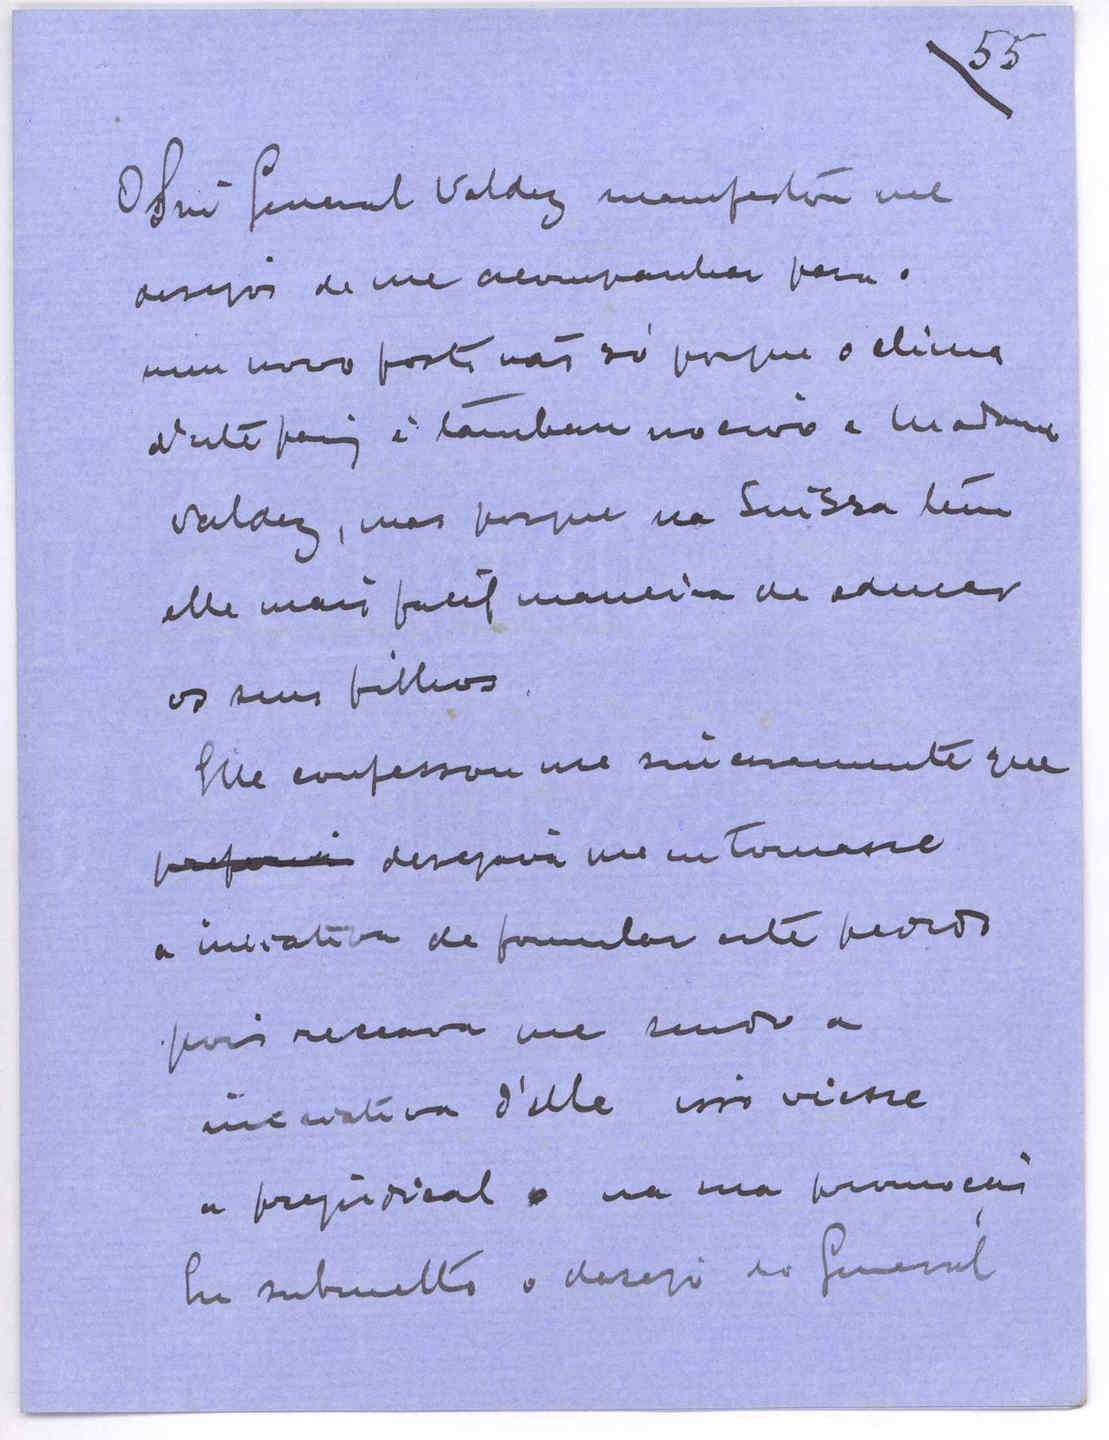 55
O Snr General Valdez manifestou me
desejos de me acompanhar para o
meu novo posto não só porque o clima
d'este paiz é tambem nocivo a Madame
Valdez, mas porque na Suissa tem
elle mais facil maneira de educar
os seus filhos.
Elle confessou me sinceramente que
preferia desejava me eu tomasse
a iniciativa de formular este pedido
pois receava que sendo a
iniciativa d'elle isso viesse
a prejudical o na sua promoção
Eu submetto o desejo do General